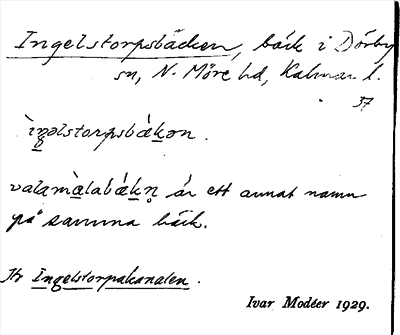 Ingelstorpsbäcken, bäck i Dörby
sn, N. Möre hd, Kalmar l.
37
ìŋəlstorpsbǽkən.
valəmàlabǽkn̥ är ett annat namn
på samma bäck.
Jfr Ingelstorpakanalen.
Ivar Modéer 1929.